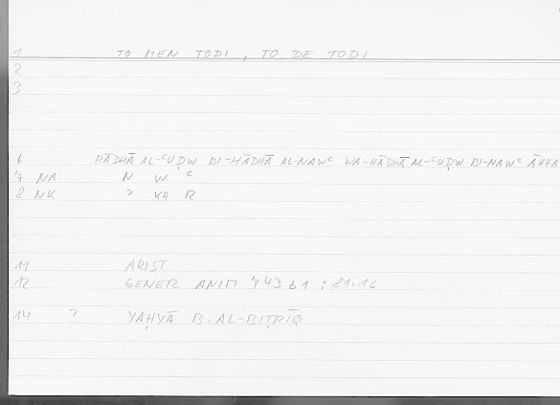 1 TO MEN TODI, TO DE TODI
2
3
6 HĀDHĀ AL-ᶜUḌW BI-HĀDHĀ AL-NAWᶜ WA-HĀDHĀ AL-ᶜUḌW BI-NAWᶜ ĀKHA
7 NA N W ᶜ
8 NK ? KH R
11 ARIST
12 GENER ANIM 743 b1 ; 81.16
14 ? YAḤYĀ B. AL-BIṬRĪQ